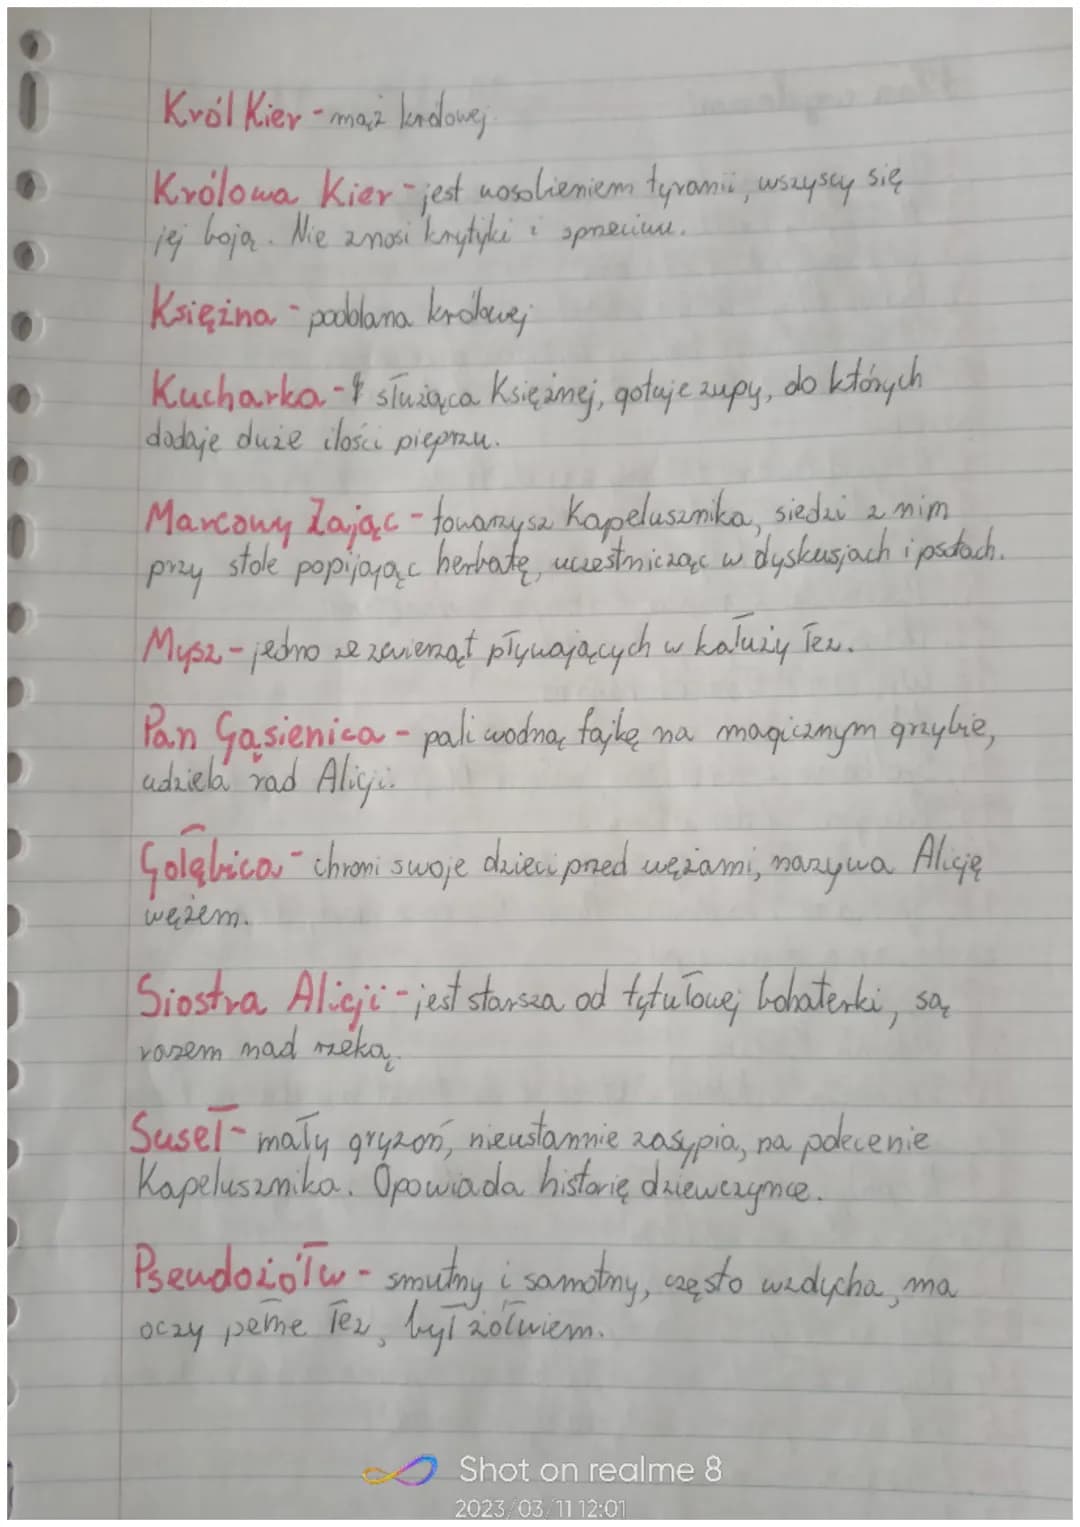 Król Kier - mąż królowej
Królowa Kier - jest uosobieniem tyranii, wszyscy się
jej boją. Nie znosi krytyki i sprzeciwu.
Księżna - poddana królowej
Kucharka - służąca Księżnej, gotuje zupy, do których
dodaje duże ilości pieprzu.
Marcowy Zając - towarzysz Kapelusznika, siedzi z nim
przy stole popijając herbatę, uczestnicząc w dyskusjach i psotach.
Mysz - jedno ze zwierząt pływających w kałuży łez.
Pan Gąsienica - pali wodną fajkę na magicznym grzybie,
udziela rad Alicji.
Gołębica - chroni swoje dzieci przed wężami, nazywa Alicję
wężem.
Siostra Alicji - jest starsza od tytułowej bohaterki, są
razem nad rzeką.
Suseł - mały gryzoń, nieustannie zasypia, na polecenie
Kapelusznika. Opowiada historię dziewczynce.
Pseudożółw - smutny i samotny, często wzdycha, ma
oczy pełne łez, był żółwiem.
Shot on realme 8
2023/03/11 12:01